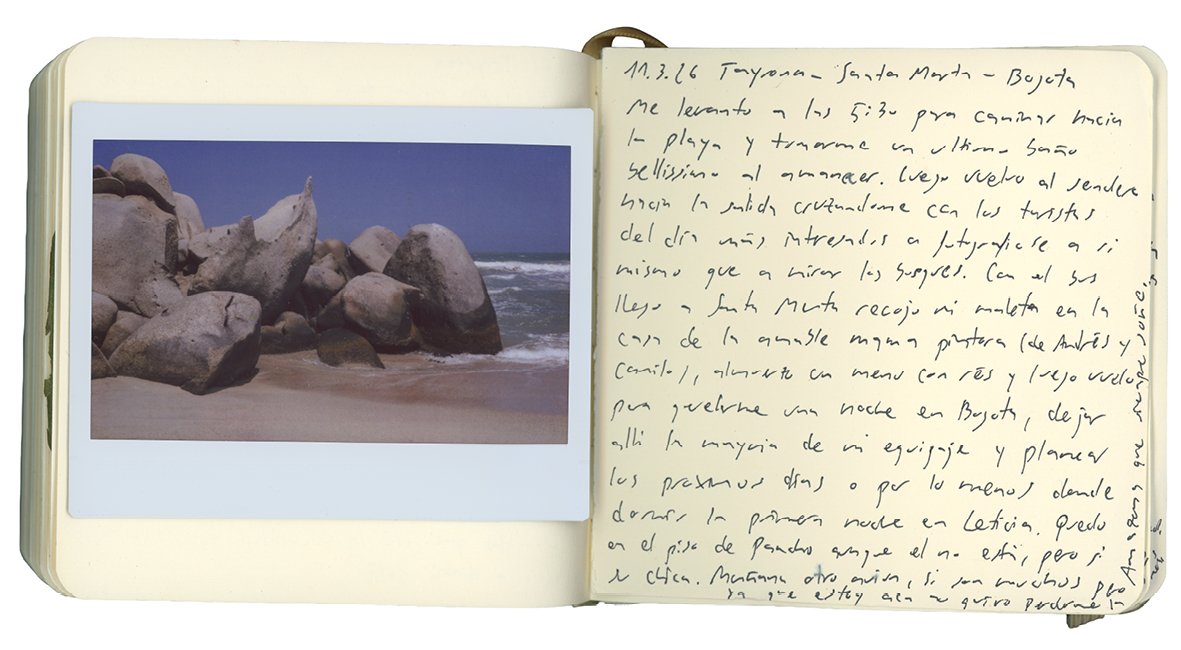 11.3.26 Tayrona - Santa Marta - Bogota
Me levanto a las 5:30 para caminar hacia
la playa y tomarme un ultimo baño
bellissimo al amanecer. Luego vuelvo al sendero
hacia la salida cruzandome con los turistas
del día más intresados a fotografiarse a si
mismo que a mirar los bosques. Con el bus
llego a Santa Marta recojo mi maleta en la
casa de la amable mama pintora (de Andrés y
Camilo), almuerzo un menu con rés y luego vuelo
para quedarme una noche en Bogota, dejar
alli la mayoria de mi equipaje y planear
los proximos dias o por lo menos donde
dormir la primera noche en Leticia. Quedo
en el piso de Pancho aunque el no está, pero si
su chica. Mañana otro avion, si son muchos pero
ya que estoy aca no quiero perderme la
Amazonas que siempre soñe.